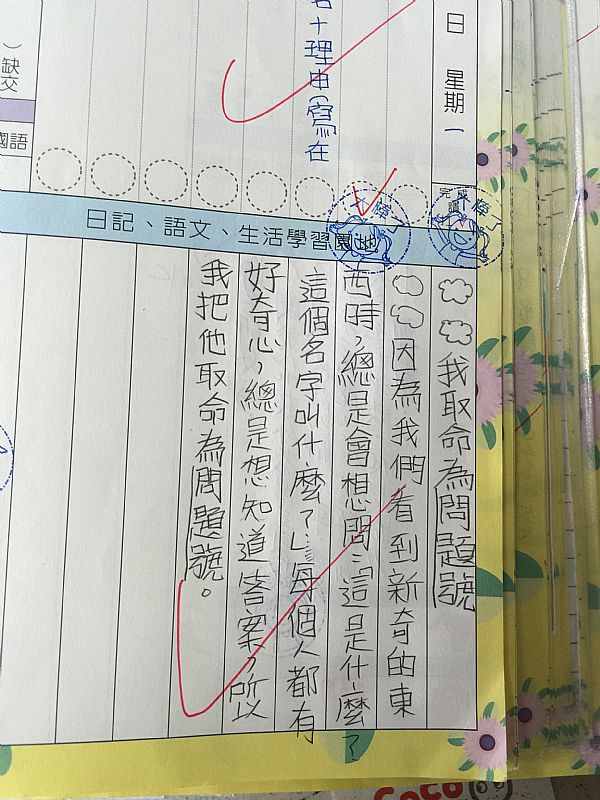 日 星期一
名+理由(寫在
缺交
國語
完成
日記、語文、生活學習園地
我取命為問題號
因為我們看到新奇的東
西時,總是會想問:「這是什麼?
這個名字叫什麼?」⋯⋯每個人都有
好奇心,總是想知道答案,所以
我把他取命為問題號。
大棒了
大棒了
Coco